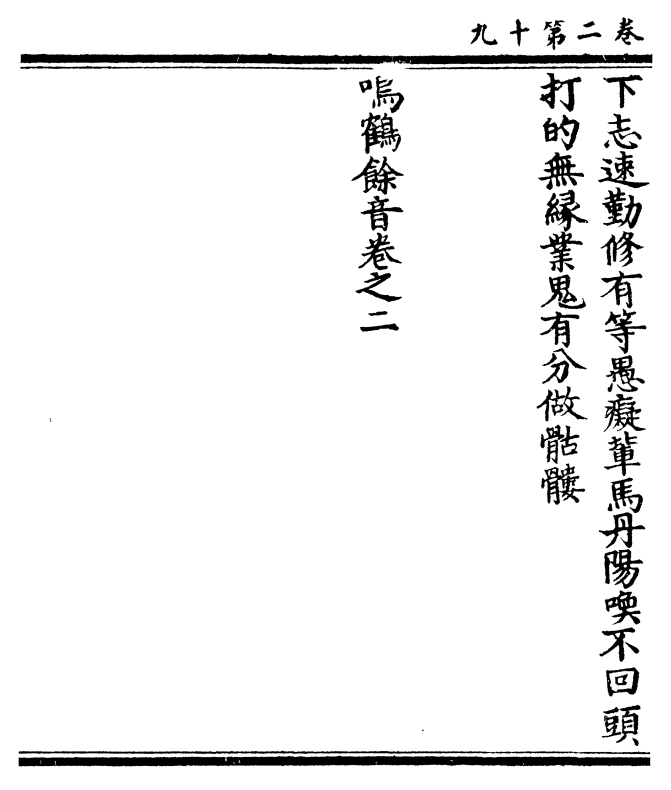 卷二第十九
下志速勤修有等愚癡輩馬丹陽喚不回頭
打的無緣業鬼有分做骷髏
鳴鶴餘音卷之二